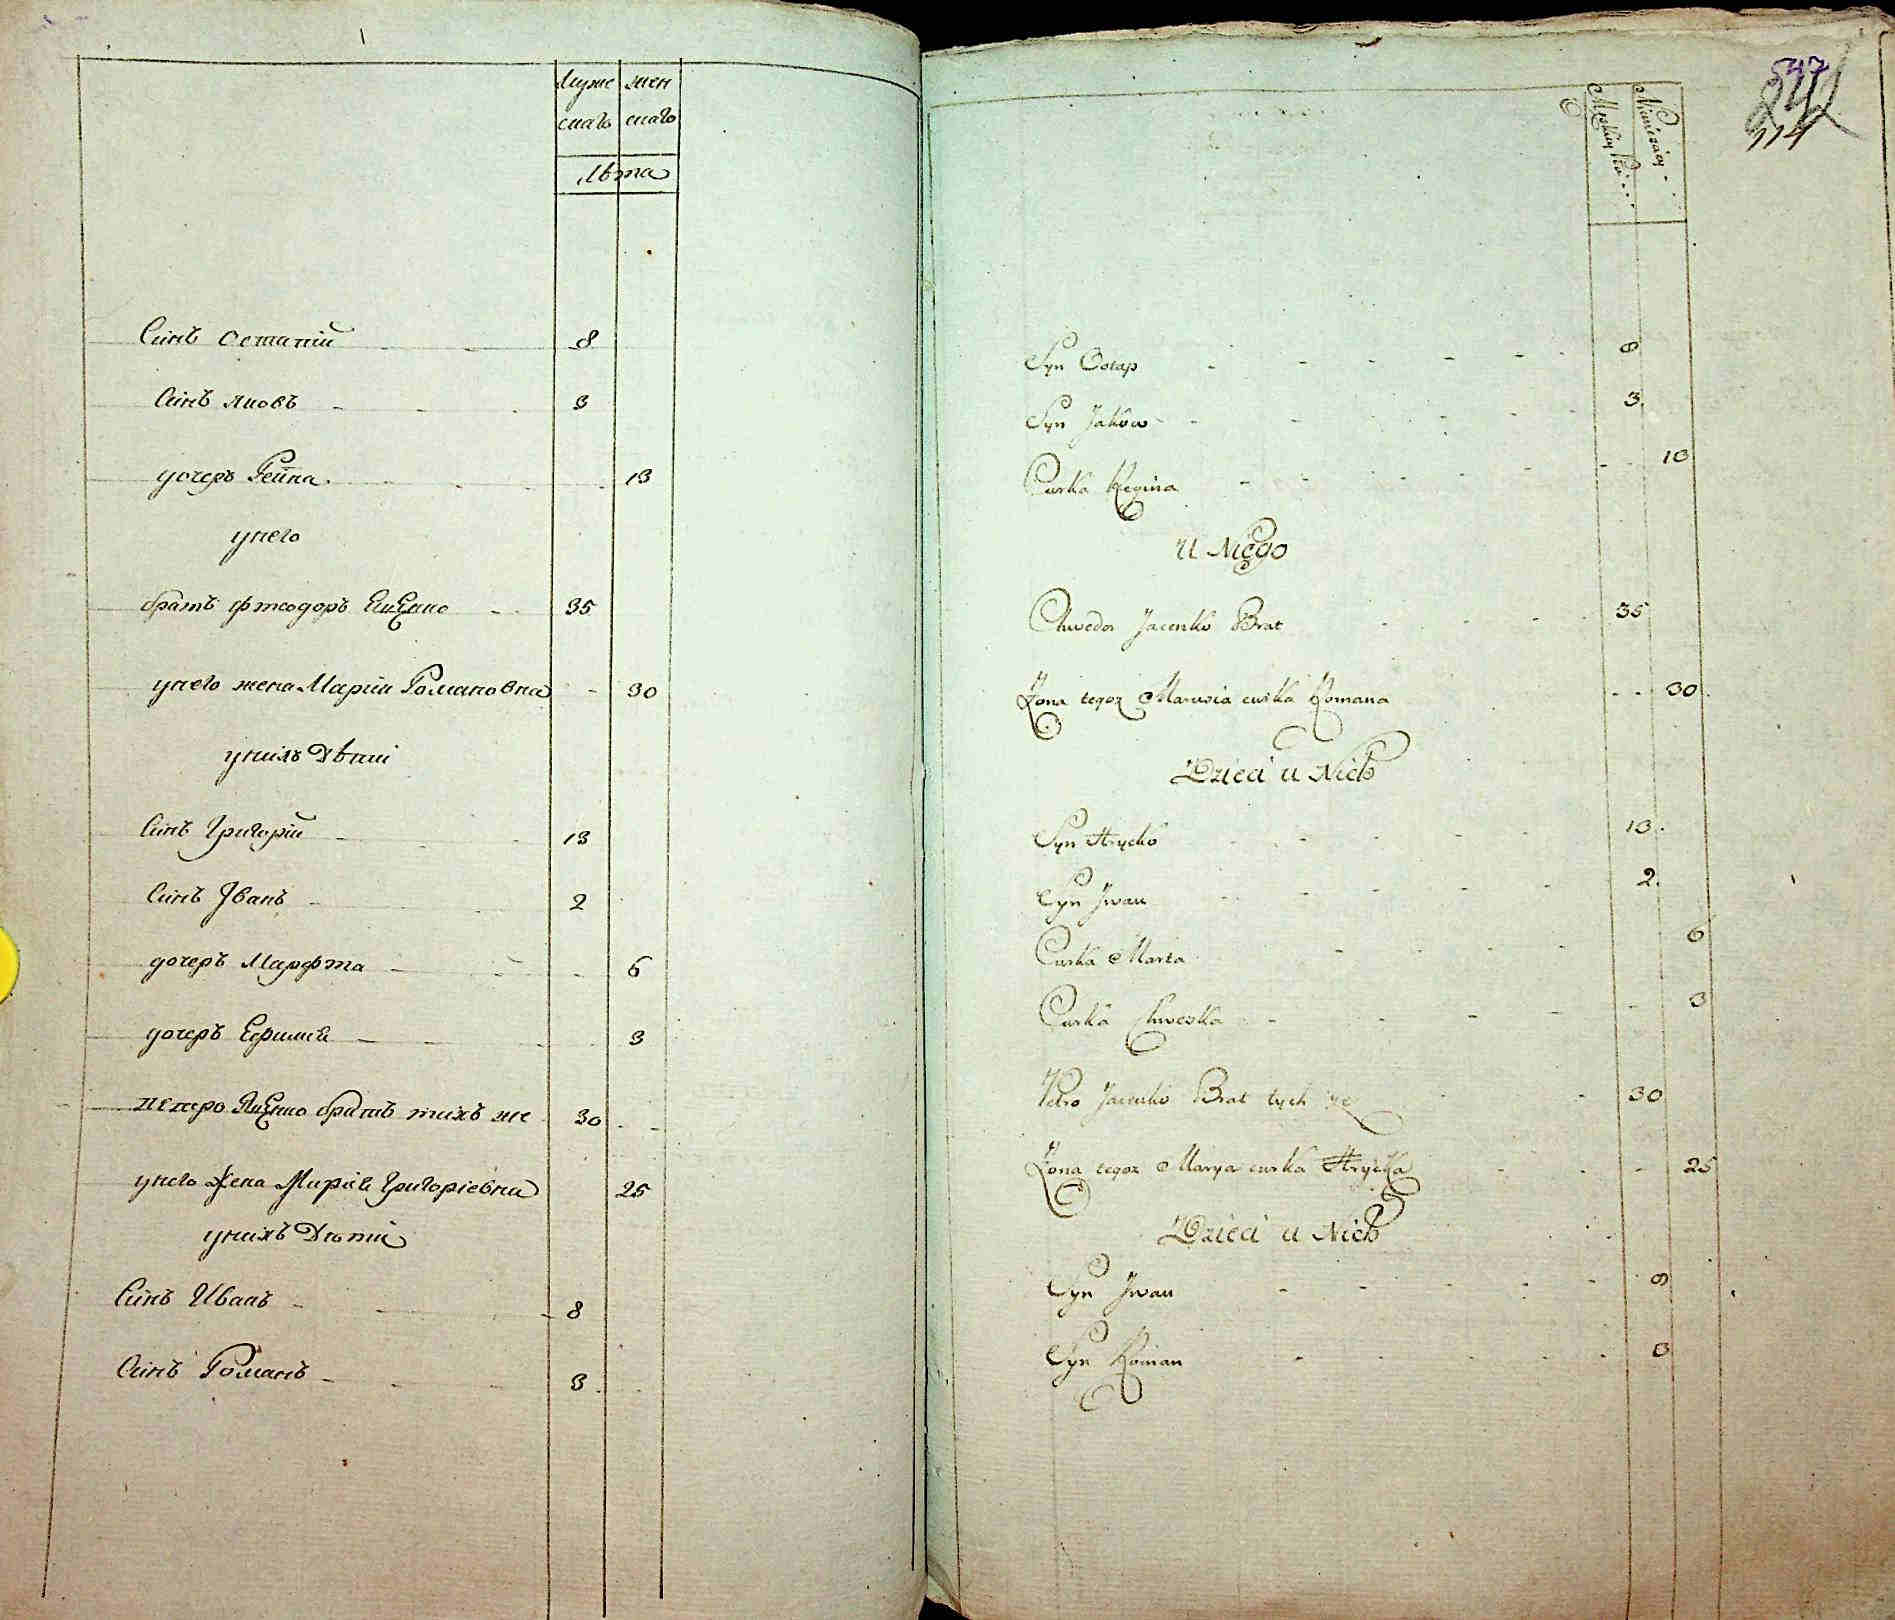 муже жен
скаго скаго
лѣта
Синъ Остапій 8
Синъ яковъ 3
дочеръ Регина 13
унего
братъ фтеодоръ Яценко 35
унего жена Марія Романовна 30
унихъ Дѣти
Синъ Григорій 13
Синъ Іванъ 2
дочеръ Марфта 6
дочеръ Ефимія 3
петро Яценко братъ тихъ же 30
унего Жена Марія Григоріевна 25
унихъ Дѣти
Синъ Иванъ 8
Синъ Романъ 3
547
242
114
Męskiey Płci
Niewieściey
Syn Ostap 8
Syn Jaków 3
Curka Regina 13
U Niego
Chwedor Jacenko Brat 35
Żona tegoz Marusia curka Romana 30
Dzieci u Nich
Syn Hrycko 13
Syn Jwan 2
Curka Marta 6
Curka Chweska 3
Petro Jacenko Brat tych że 30
Żona tegoz Marya curka Hrycka 25
Dzieci u Nich
Syn Jwan 8
Syn Roman 3